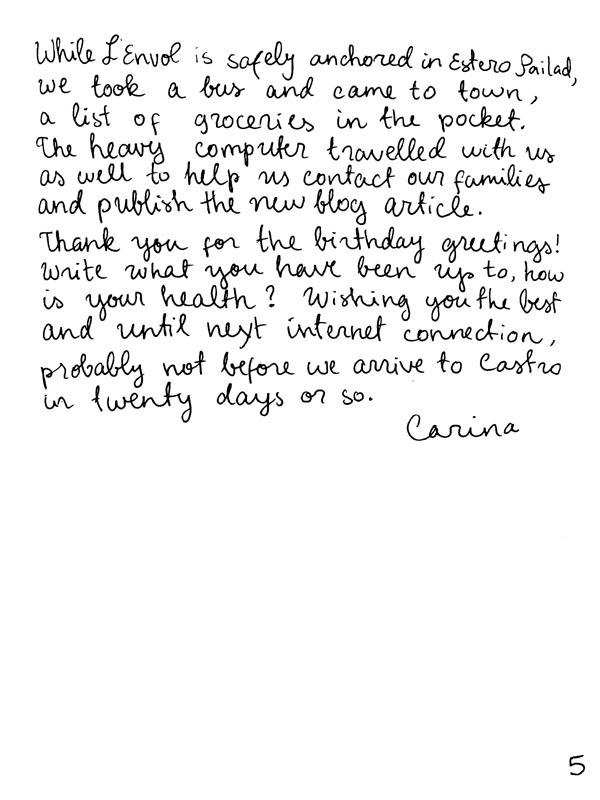 While L'Envol is safely anchored in Estero Pailad,
we took a bus and came to town,
a list of groceries in the pocket.
The heavy computer travelled with us
as well to help us contact our families
and publish the new blog article.
Thank you for the birthday greetings!
Write what you have been up to, how
is your health? Wishing you the best
and until next internet connection,
probably not before we arrive to Castro
in twenty days or so.
Carina
5